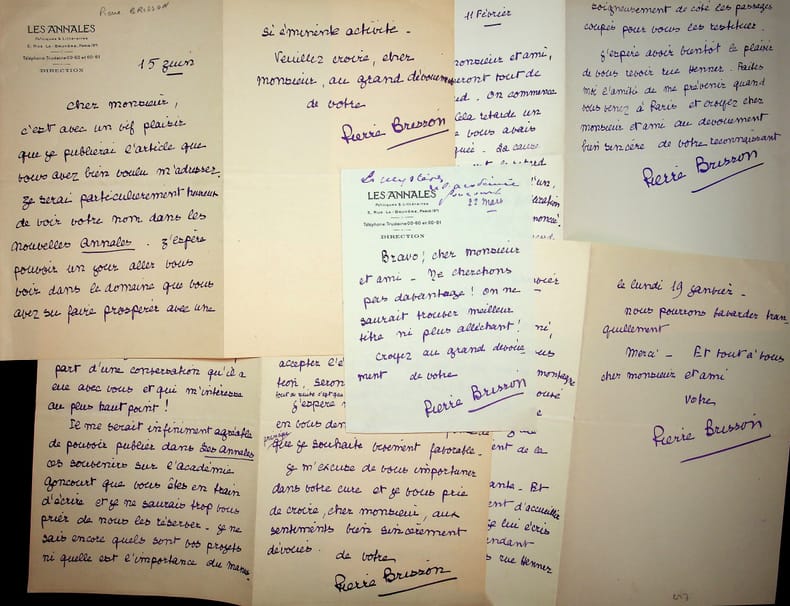 Pierre BRISSON
LES ANNALES
Politiques & Littéraires
5, Rue La-Bruyère, Paris (9e)
Téléphone: Trudaine 60-60 et 60-61
DIRECTION
15 juin
Cher monsieur,
c'est avec un vif plaisir
que je publierai l'article que
vous avez bien voulu m'adresser.
Je serai particulièrement heureux
de voir votre nom dans les
nouvelles Annales. J'espère
pouvoir un jour aller vous
voir dans le domaine que vous
avez su faire prospérer avec une
si éminente activité.
Veuillez croire, cher
monsieur, au grand dévouement
de votre
Pierre Brisson
11 Février
monsieur et ami,
seront tout de
On commence
Cela retarde un
vous avais
La cause
soigneusement de coté les passages
coupés pour vous les restituer.
J'espère avoir bientot le plaisir
de vous revoir rue Henner. Faites
moi l'amitié de me prévenir quand
vous venez à Paris et croyez cher
monsieur et ami au dévouement
bien sincère de votre reconnaissant
Pierre Brisson
Le mystère
de l'académie
Goncourt
LES ANNALES
Politiques & Littéraires
5, Rue La-Bruyère, Paris (9e)
Téléphone: Trudaine 60-60 et 60-61
DIRECTION
22 mars
Bravo! cher monsieur
et ami - Ne cherchons
pas davantage! On ne
saurait trouver meilleur
titre ni plus alléchant!
Croyez au grand dévoue-
ment de votre
Pierre Brisson
le lundi 19 janvier -
nous pourrons bavarder tran-
quillement
Merci - Et tout à vous
cher monsieur et ami
Votre
Pierre Brisson
part d'une conversation qu'il a
eue avec vous et qui m'intéresse
au plus haut point!
Il me serait infiniment agréable
de pouvoir publier dans Les Annales
ces souvenirs sur l'académie
Goncourt que vous êtes en train
d'écrire et je ne saurais trop vous
prier de nous les réserver. Je ne
sais encore quels sont vos projets
ni quelle est l'importance du manus
accepter
tion, seront
tout de suite
J'espère
en vous
presque
que je souhaite vivement favorable.
Je m'excuse de vous importuner
dans votre cure et je vous prie
de croire, cher monsieur, aux
sentiments bien sincèrement
dévoués de votre
Pierre Brisson
ent de la
Et
ent d'accueillir
je lui écris
pendant
rue Henner